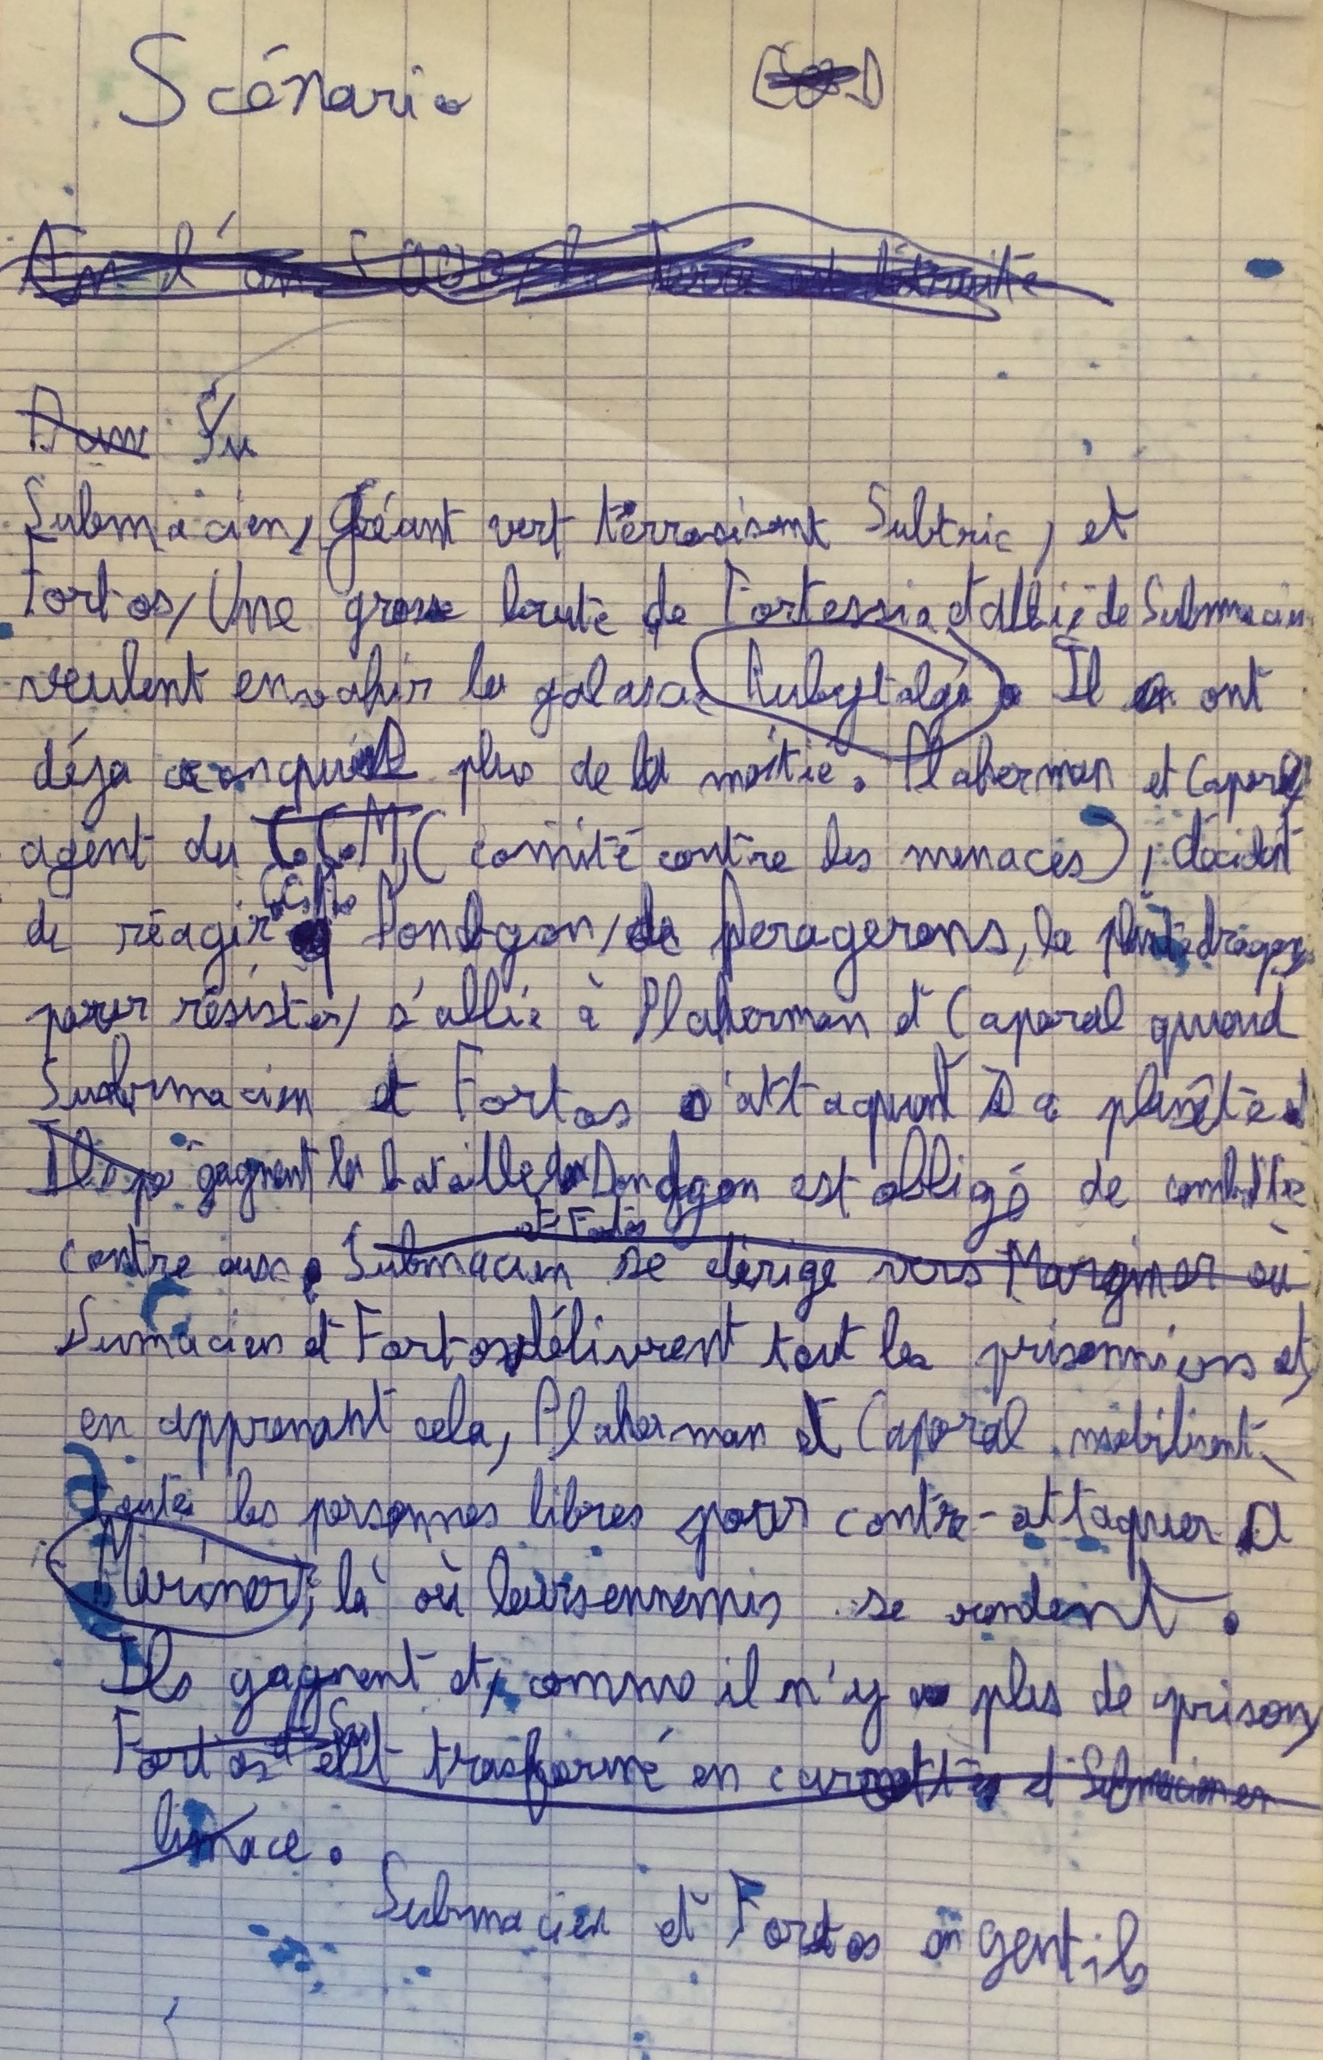 Scénario
En l'an 5000, la Terre est détruite
Dans
Submacien, Géant vert terrorisant Subtric, et
Fortos, Une grosse brute de Fortessia et allié de Submacien
veulent envahir la galaxie Rubytalga. Il ont
déja conquit plus de la moitié. Plaherman et Caporal
agent du C.C.M, (comité contre les menaces), décident
de réagir. Dondgon, de Peragerons, la planète dragon
pour résister, s'allie à Plaherman et Caporal quand
Submacien et Fortos attaquent sa planète.
Ils gagnent la bataille Dondgon est obligé de combattre
et Fortos
contre eux. Submacien se dérige vers Marginor où
Sumacien et Fortos délivrent tout les prisonniers et,
en apprenant cela, Plaherman et Caporal mobilisent
toute les personnes libres pour contre-attaquer a
Marinor, là où leurs ennemis se rendent.
Ils gagnent et, comme il n'y a plus de prison,
Fortos est trasformé en carotte et Submacien en
limace.
Submacien et Fortos en gentils